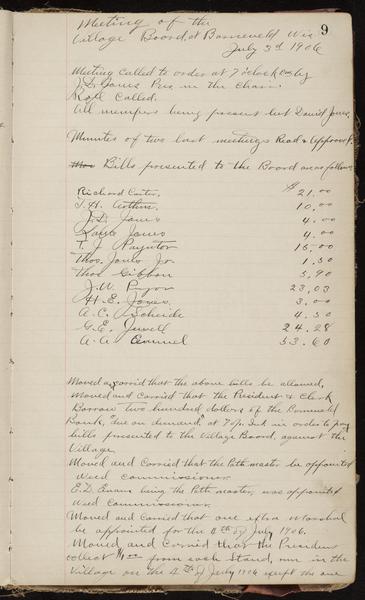 9
Meeting of the
Village Board, at Barneveld Wis
July 3d 1906
Meeting called to order at 7 o'clock by
J.D. Jones Pres in the Chair.
Roll Called.
All members being present but David Jones.
Minutes of two last meetings Read & Approved.
Bills presented to the Board as follows
Richard Carter. $21.00
J.H. 10.00
J.D. Jones 4.00
Jones 4.00
T. J. Paynter 15.00
Thos. Jones Jr. 1.50
Thos Gibbon 5.90
J.W. Pryor 23.03
H.E. Jones. 3.00
A.C. Scheide 4.50
G.E. Jewell 24.28
A.A. 53.60
Moved & Carried that the above bills be allowed,
Moved and Carried that the President & Clerk
Borrow Two hundred dollars of the Barneveld
Bank, "due on demand," at 7% Int in order to pay
bills presented to the Village Board, against the
Village.
Moved and Carried that the Path master be appointed
weed commissioner.
E.D. Evans being the Path master, was appointed
weed Commissioner.
Moved and Carried that one extra Marshal
be appointed for the 4th of July 1906.
Moved and Carried that the President
collect $1.00 from each Stand, run in the
Village on the 4th of July 1906 except the one